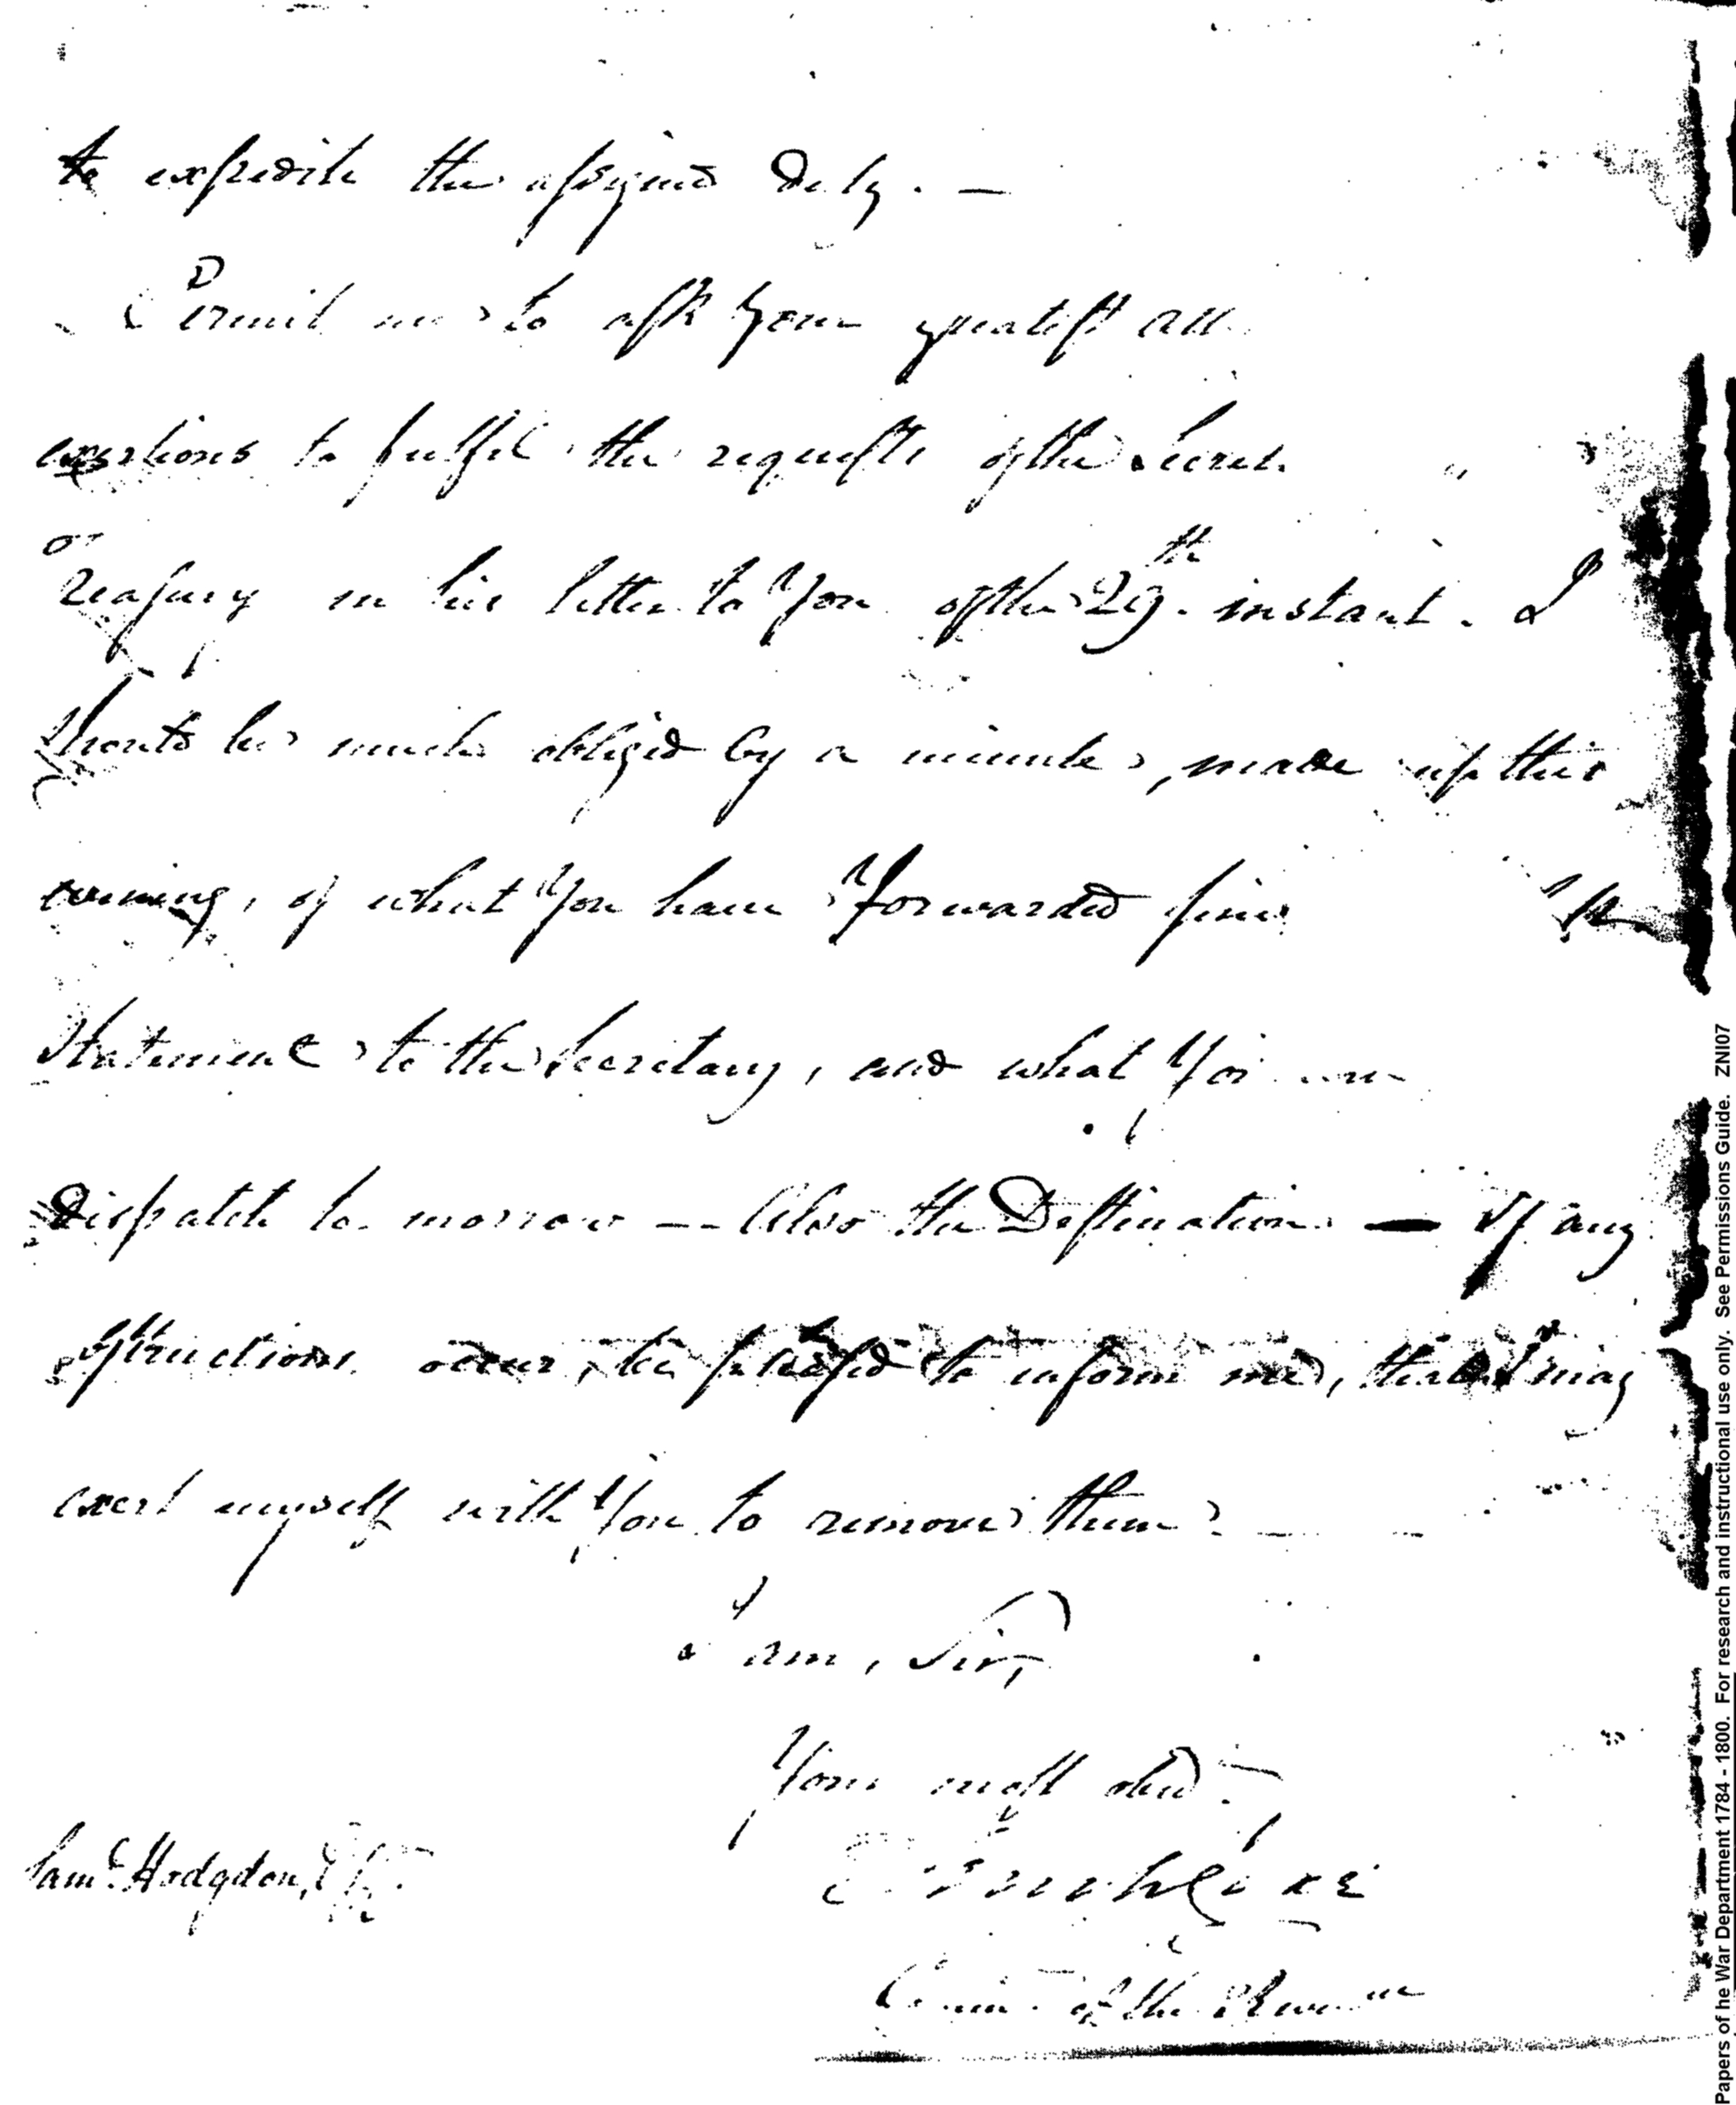 to expedite the assigned Duty. —
Permit me to ask Your greatest
exertions to fulfil the requests of the
Treasury in his letter to You of the 29th. instant. I
should be much obliged by a minute, made up this
evening, of what You have forwarded since
Statement to the Secretary, and what You
dispatch to morrow — Also the Destination — If any
obstructions occur, be pleased to inform me, that I may
exert myself with You to remove them. —
I am, Sir,
Your most obed.
Saml. Hodgdon, Esqr.
Tench Coxe
Commr. of the Revenue
Papers of he War Department 1784 - 1800. For research and instructional use only. See Permissions Guide. ZNI07